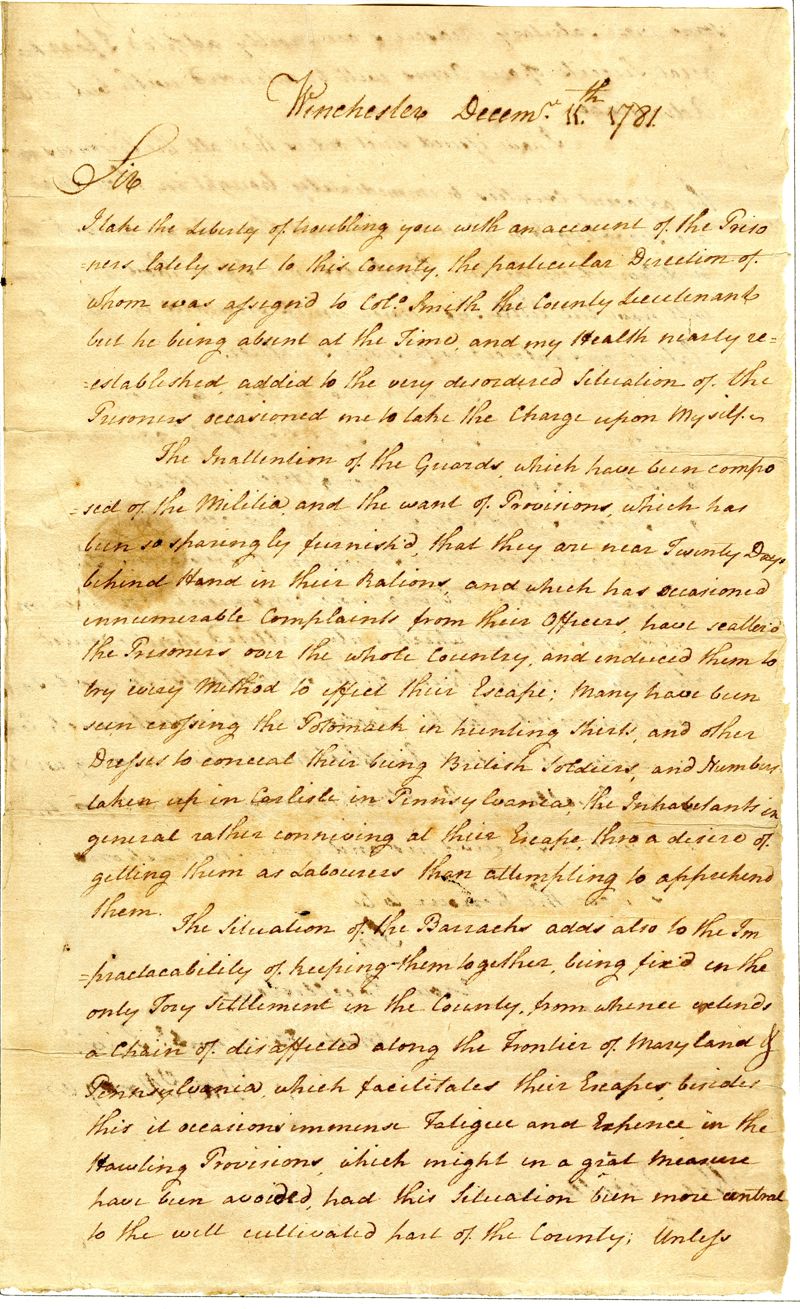 Winchester Decemr. 11th 1781.
Sir
I take the Liberty of troubling you with an account of the Priso
=ners lately sent to this County, the particular Direction of
whom was assign'd to Colo. Smith the County Lieutenant
but he being absent at the Time, and my Health nearly re=
=established, added to the very disordered Situation of the
Prisoners occasioned me to take the Charge upon Myself.
The Inattention of the Guards, which have been compo
=sed of the Militia, and the want of Provisions, which has
been so sparingly furnish'd, that they are near Twenty Days
behind Hand in their Rations, and which has occasioned
innumerable Complaints from their Officers, have scatter'd
the Prisoners over the whole Country, and induced them to
try every Method to effect their Escape; Many have been
seen crossing the Potomack in hunting Shirts, and other
Dresses to conceal their being British Soldiers, and Numbers
taken up in Carlisle in Pennsylvania, the Inhabitants in
general rather conniving at their Escape, thro a desire of
getting them as Labourers than attempting to apprehend
them.
The Situation of the Barracks adds also to the Im
=practacability of keeping them together, being fix'd in the
only Tory Settlement in the County, from whence extends
a Chain of disaffected along the Frontier of Maryland &
Pennsylvania, which facilitates their Escapes, besides
this it occasions immense Fatigue and Expence in the
Hawling Provisions, which might in a great Measure
have been avoided, had this Situation been more central
to the well cultivated part of the County; Unless